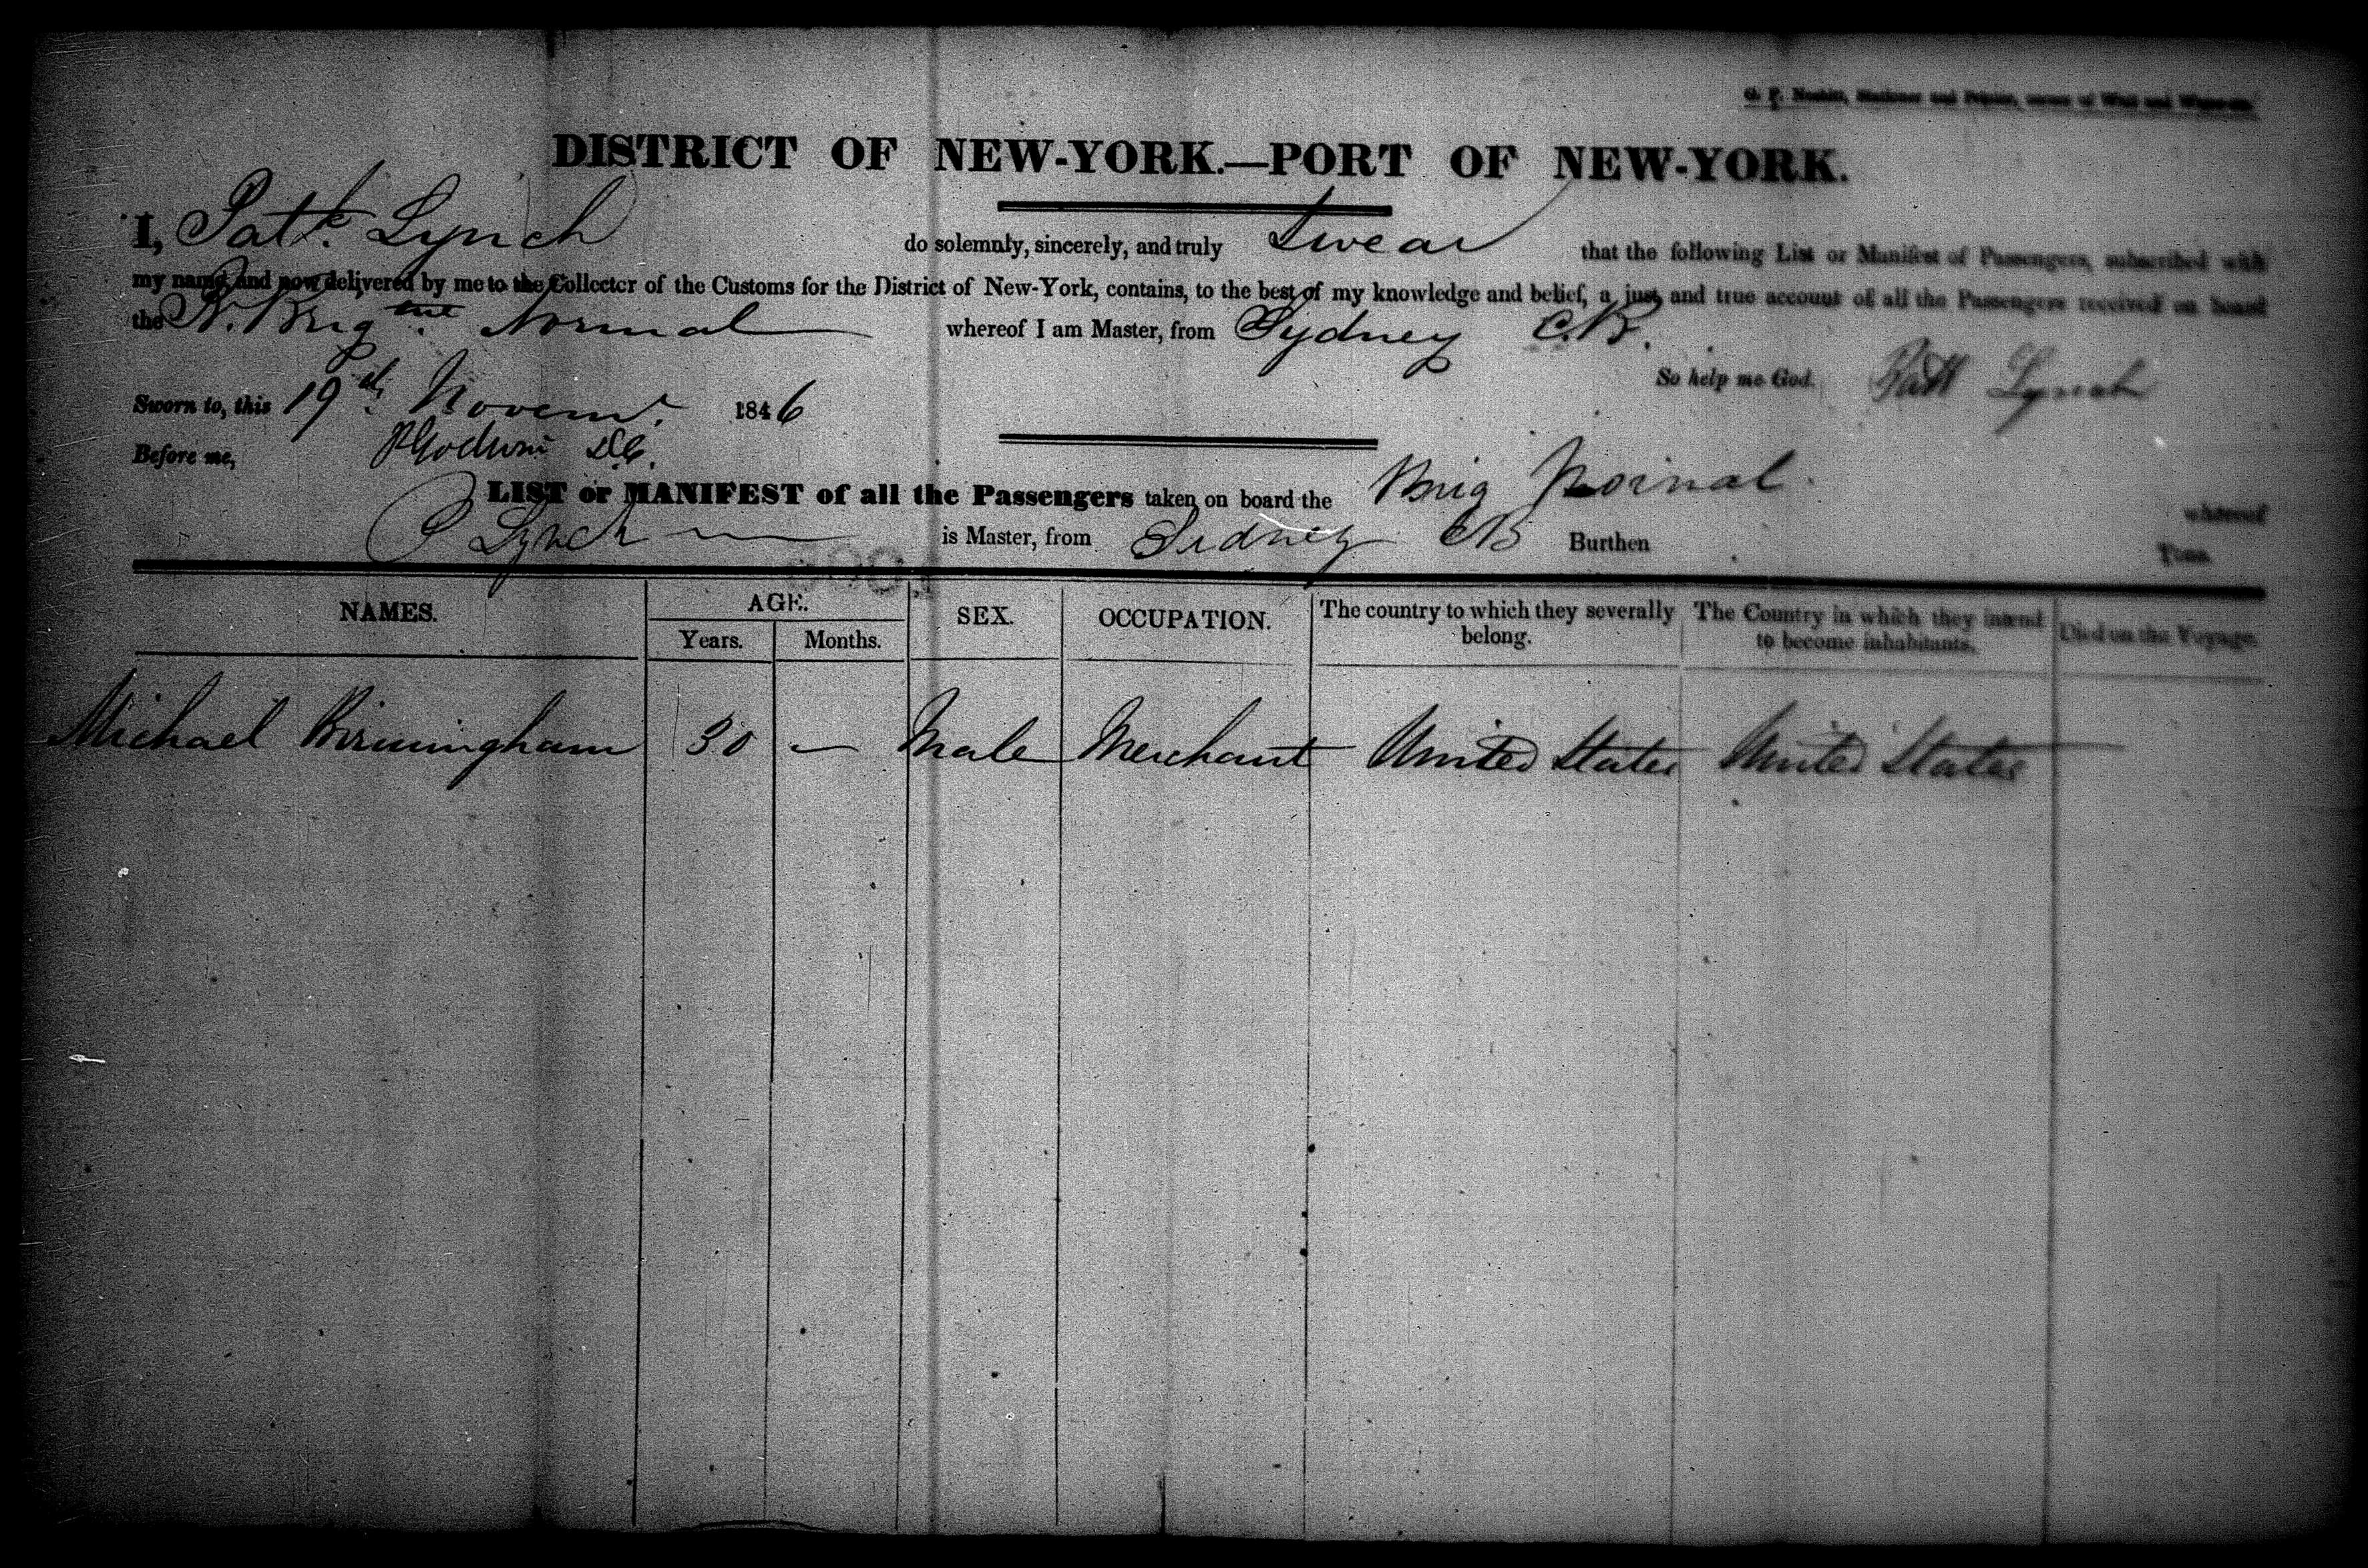 DISTRICT OF NEW-YORK.—PORT OF NEW-YORK.
I, Patk. Lynch do solemnly, sincerely, and truly Swear that the following List or Manifest of Passengers, subscribed with
my name, and now delivered by me to the Collector of the Customs for the District of New-York, contains, to the best of my knowledge and belief, a just and true account of all the Passengers received on board
the Br. Brigtne Normal whereof I am Master, from Sydney C.B.
So help me God. Patk Lynch
Sworn to, this 19th Novemr. 1846
Before me,
LIST or MANIFEST of all the Passengers taken on board the Brig Normal. whereof
P Lynch is Master, from Sidney CB Burthen Tons.
NAMES. AGE. SEX. OCCUPATION. The country to which they severally belong. The Country in which they intend to become inhabitants. Died on the Voyage.
Years. Months.
Michael Birmingham 30 — Male Merchant United States United States